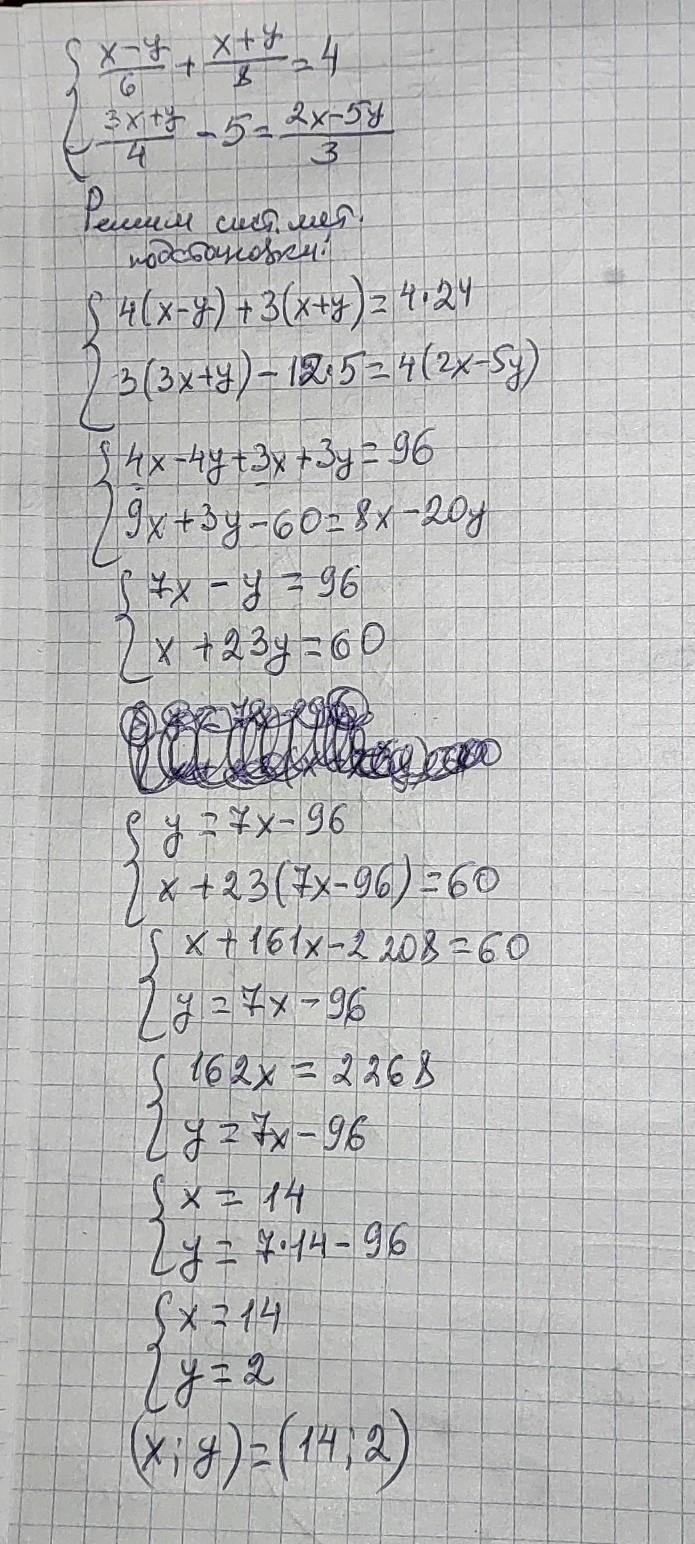 (x-y)/6 + (x+y)/8 = 4
(3x+y)/4 - 5 = (2x-5y)/3
Решим сист. мет.
подстановки:
4(x-y) + 3(x+y) = 4·24
3(3x+y) - 12·5 = 4(2x-5y)
4x-4y+3x+3y = 96
9x+3y-60 = 8x-20y
7x - y = 96
x + 23y = 60
y = 7x-96
x + 23(7x-96) = 60
x + 161x - 2208 = 60
y = 7x - 96
162x = 2268
y = 7x - 96
x = 14
y = 7·14 - 96
x = 14
y = 2
(x; y) = (14; 2)